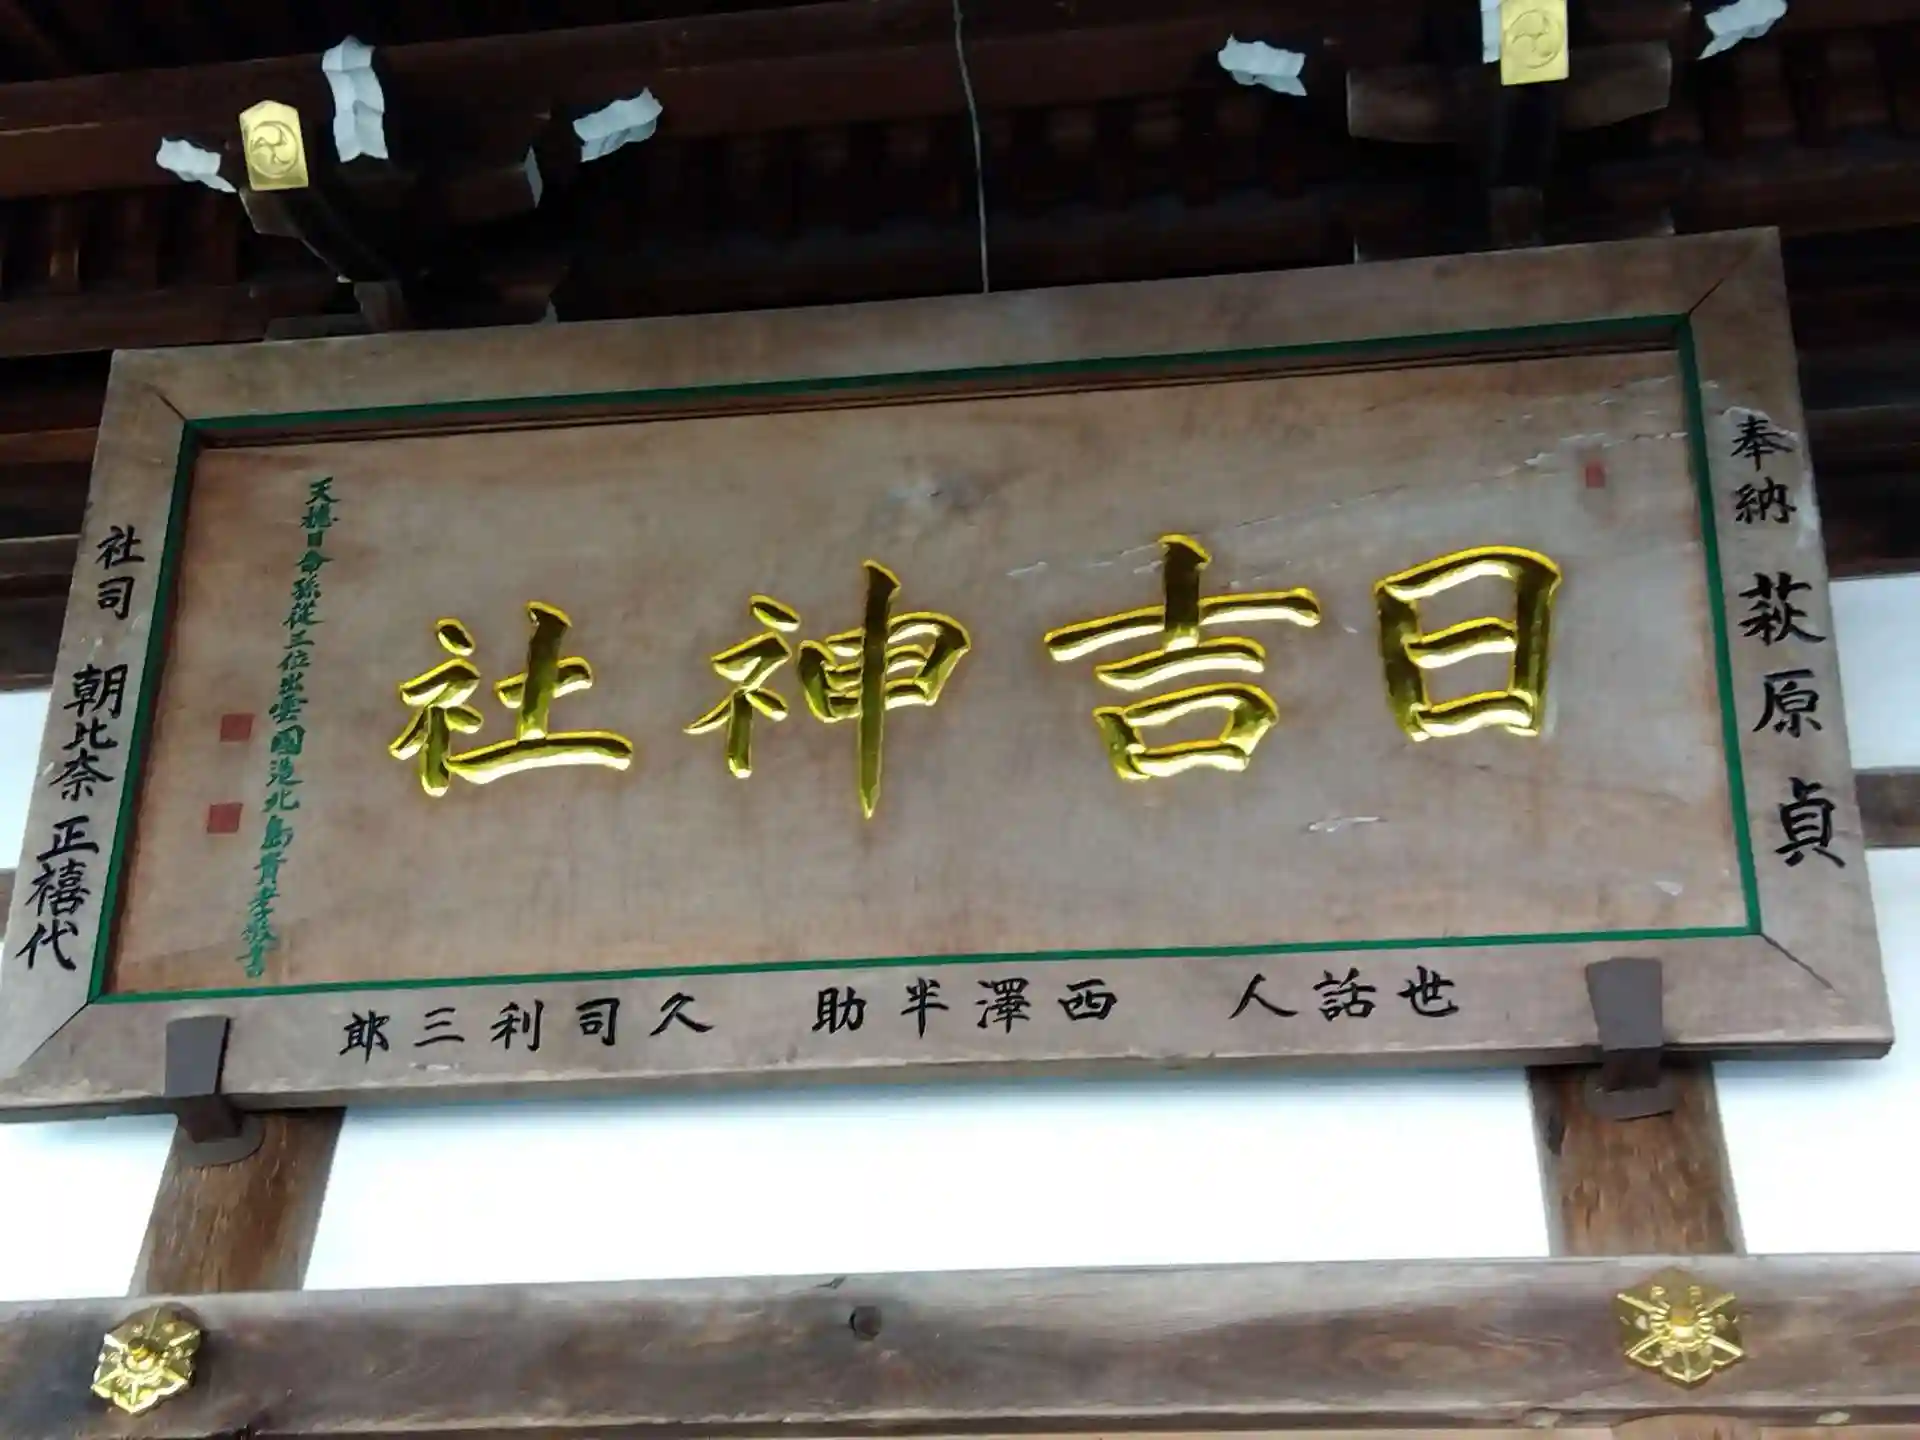 奉納 萩原貞
日吉神社
天穂日命孫従三位出雲國造北島貴孝敬書
社司 朝比奈正禧代
世話人 西澤半助 久司利三郎